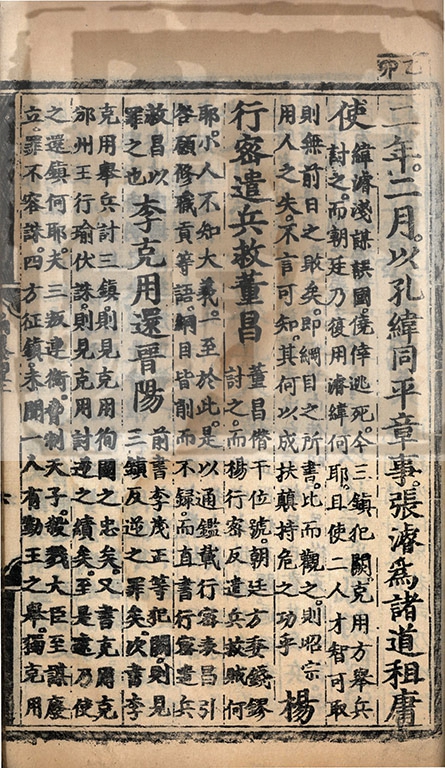 乙卯
二年。二月。以孔緯同平章事。張濬爲諸道租庸
使
緯濬淺謀誤國。僥倖逃死。今三鎭犯闕。克用方舉兵
討之。而朝廷乃復用濬緯何耶。且使二人才智可取
則無前日之敗矣。即綱目之所書。比而觀之。則昭宗
用人之失。不言可知。其何以成扶顚持危之功乎
楊
行密遣兵救董昌
董昌僭干位號。朝廷方委錢鏐
討之。而楊行密反遣兵救賊何
耶。小人不知大義。一至於此。是以通鑑載行密表昌引
咎願修職貢等語。綱目皆削而不録。而直書行密遣兵
救昌以
罪之也
李克用還晉陽
前書李茂正等犯闕。則見
三鎭反逆之罪矣。次書李
克用舉兵討三鎭則見克用徇國之忠矣。又書克用克
邠州王行瑜伏誅。則見克用討逆之績矣。至是遽乃使
之還鎭何耶。夫三叛連衡。脅制天子。殺戮大臣至謀廢
立。罪不容誅。四方征鎭。未聞一人有勤王之舉。獨克用